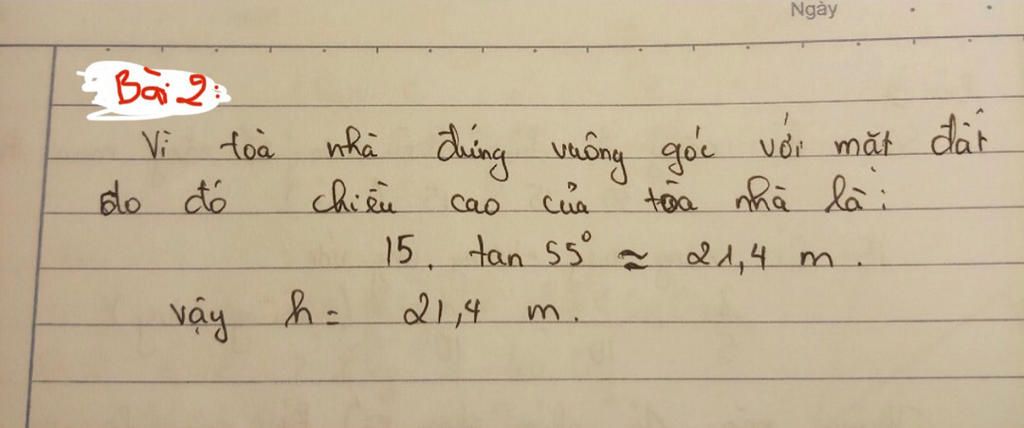 Ngày
Bài 2:
Vì toà nhà đứng vuông góc với mặt đất
do đó chiều cao của toà nhà là:
15. tan 55° ≈ 21,4 m.
vậy h = 21,4 m.